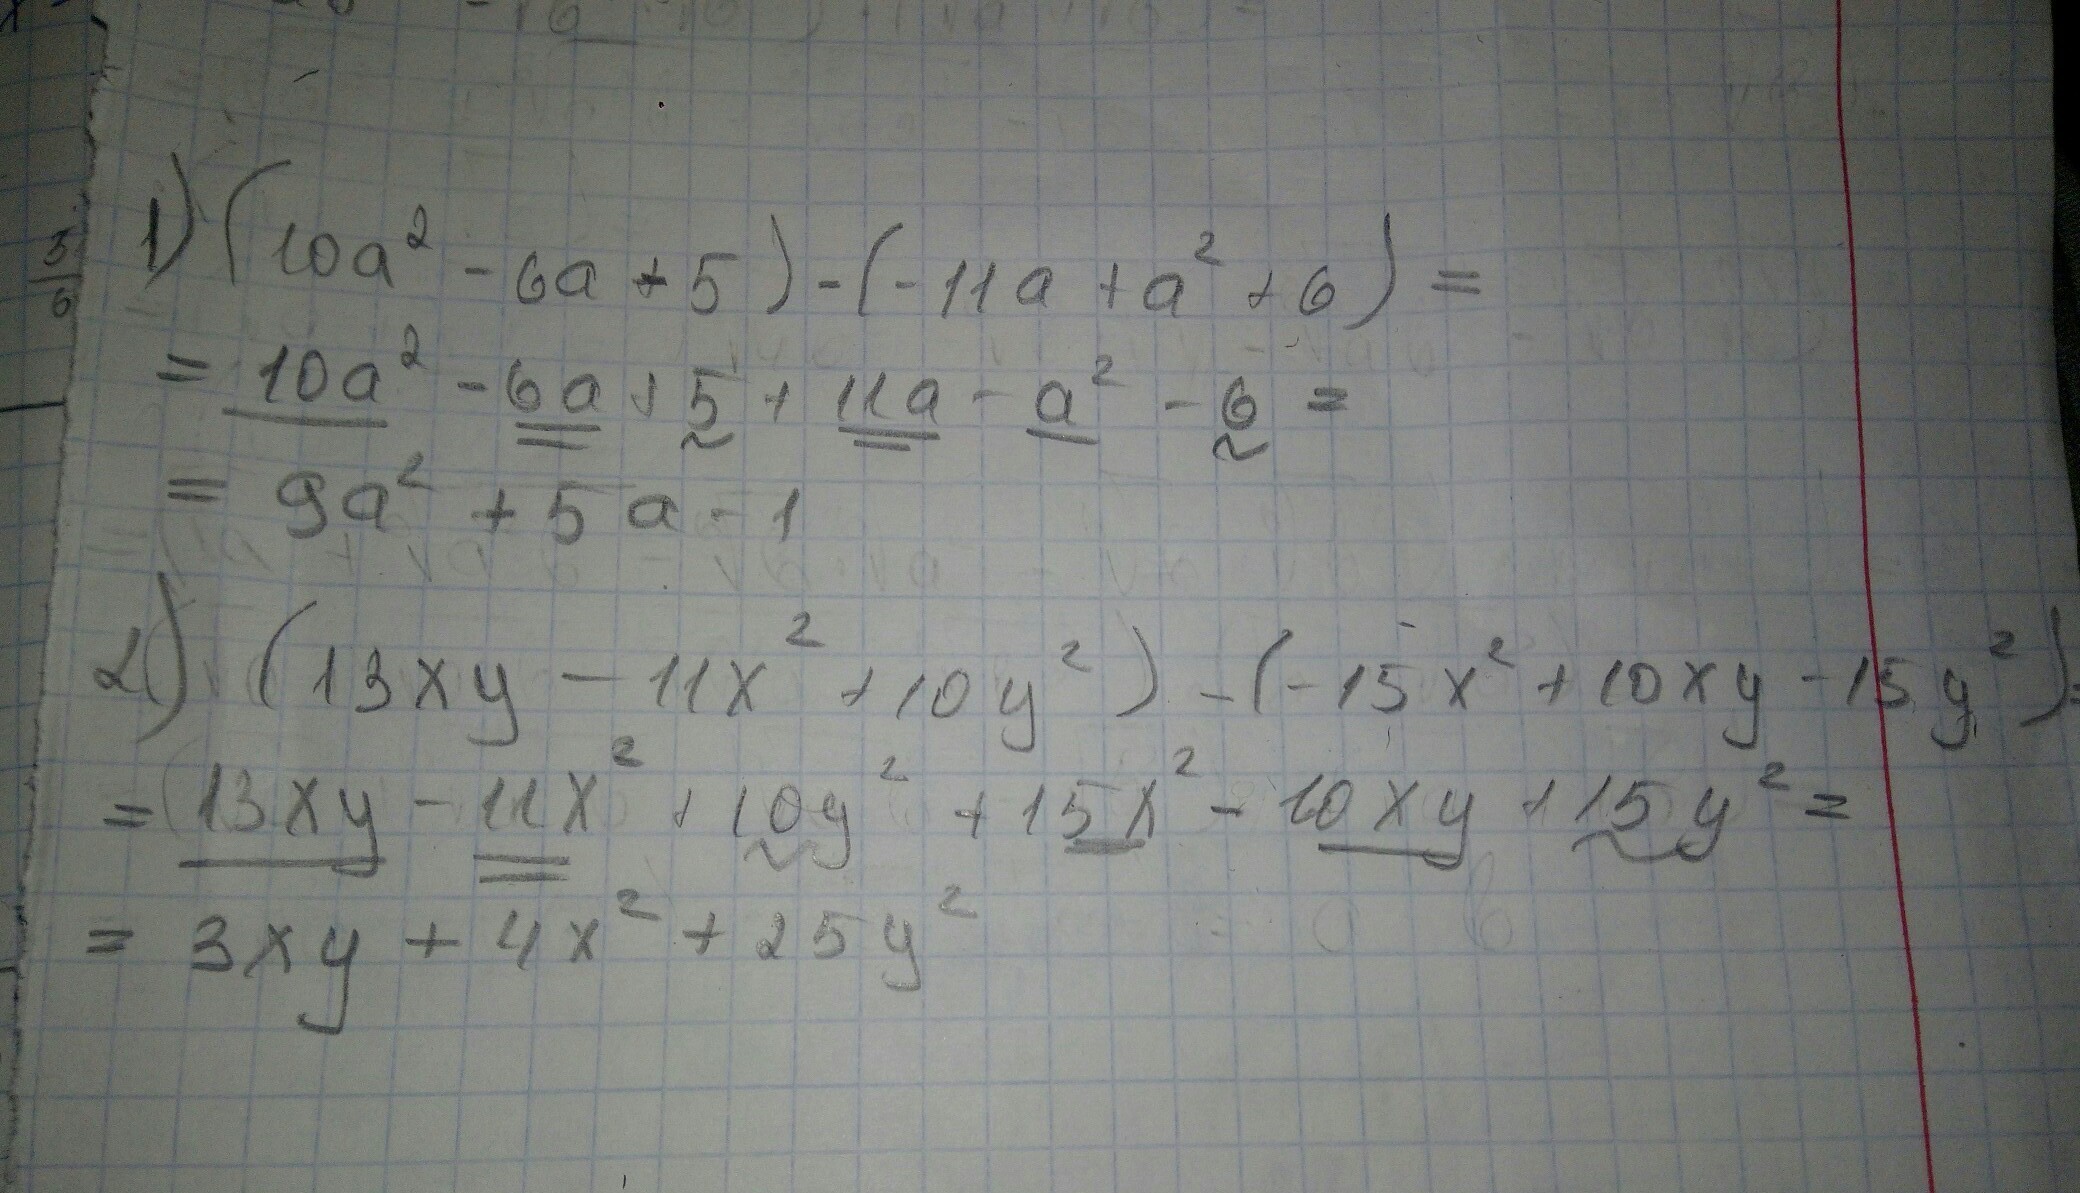 1) (10a² - 6a + 5) - (-11a + a² + 6) =
= 10a² - 6a + 5 + 11a - a² - 6 =
= 9a² + 5a - 1
2) (13xy - 11x² + 10y²) - (-15x² + 10xy - 15y²) =
= 13xy - 11x² + 10y² + 15x² - 10xy + 15y² =
= 3xy + 4x² + 25y²
5/6